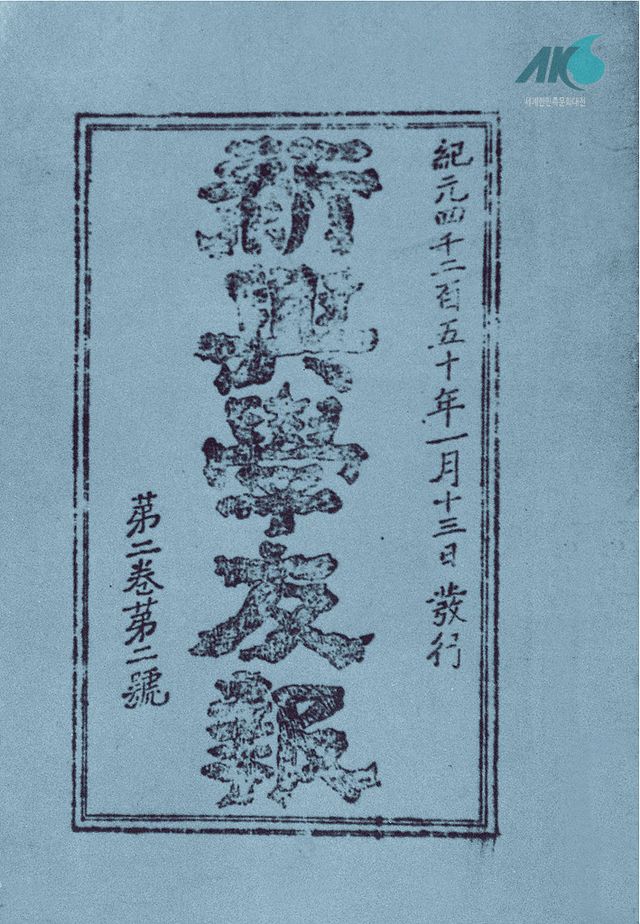 紀元四千二百五十年一月十三日 發行
新興學友報
第二卷第二號
AKS
세계한민족문화대전